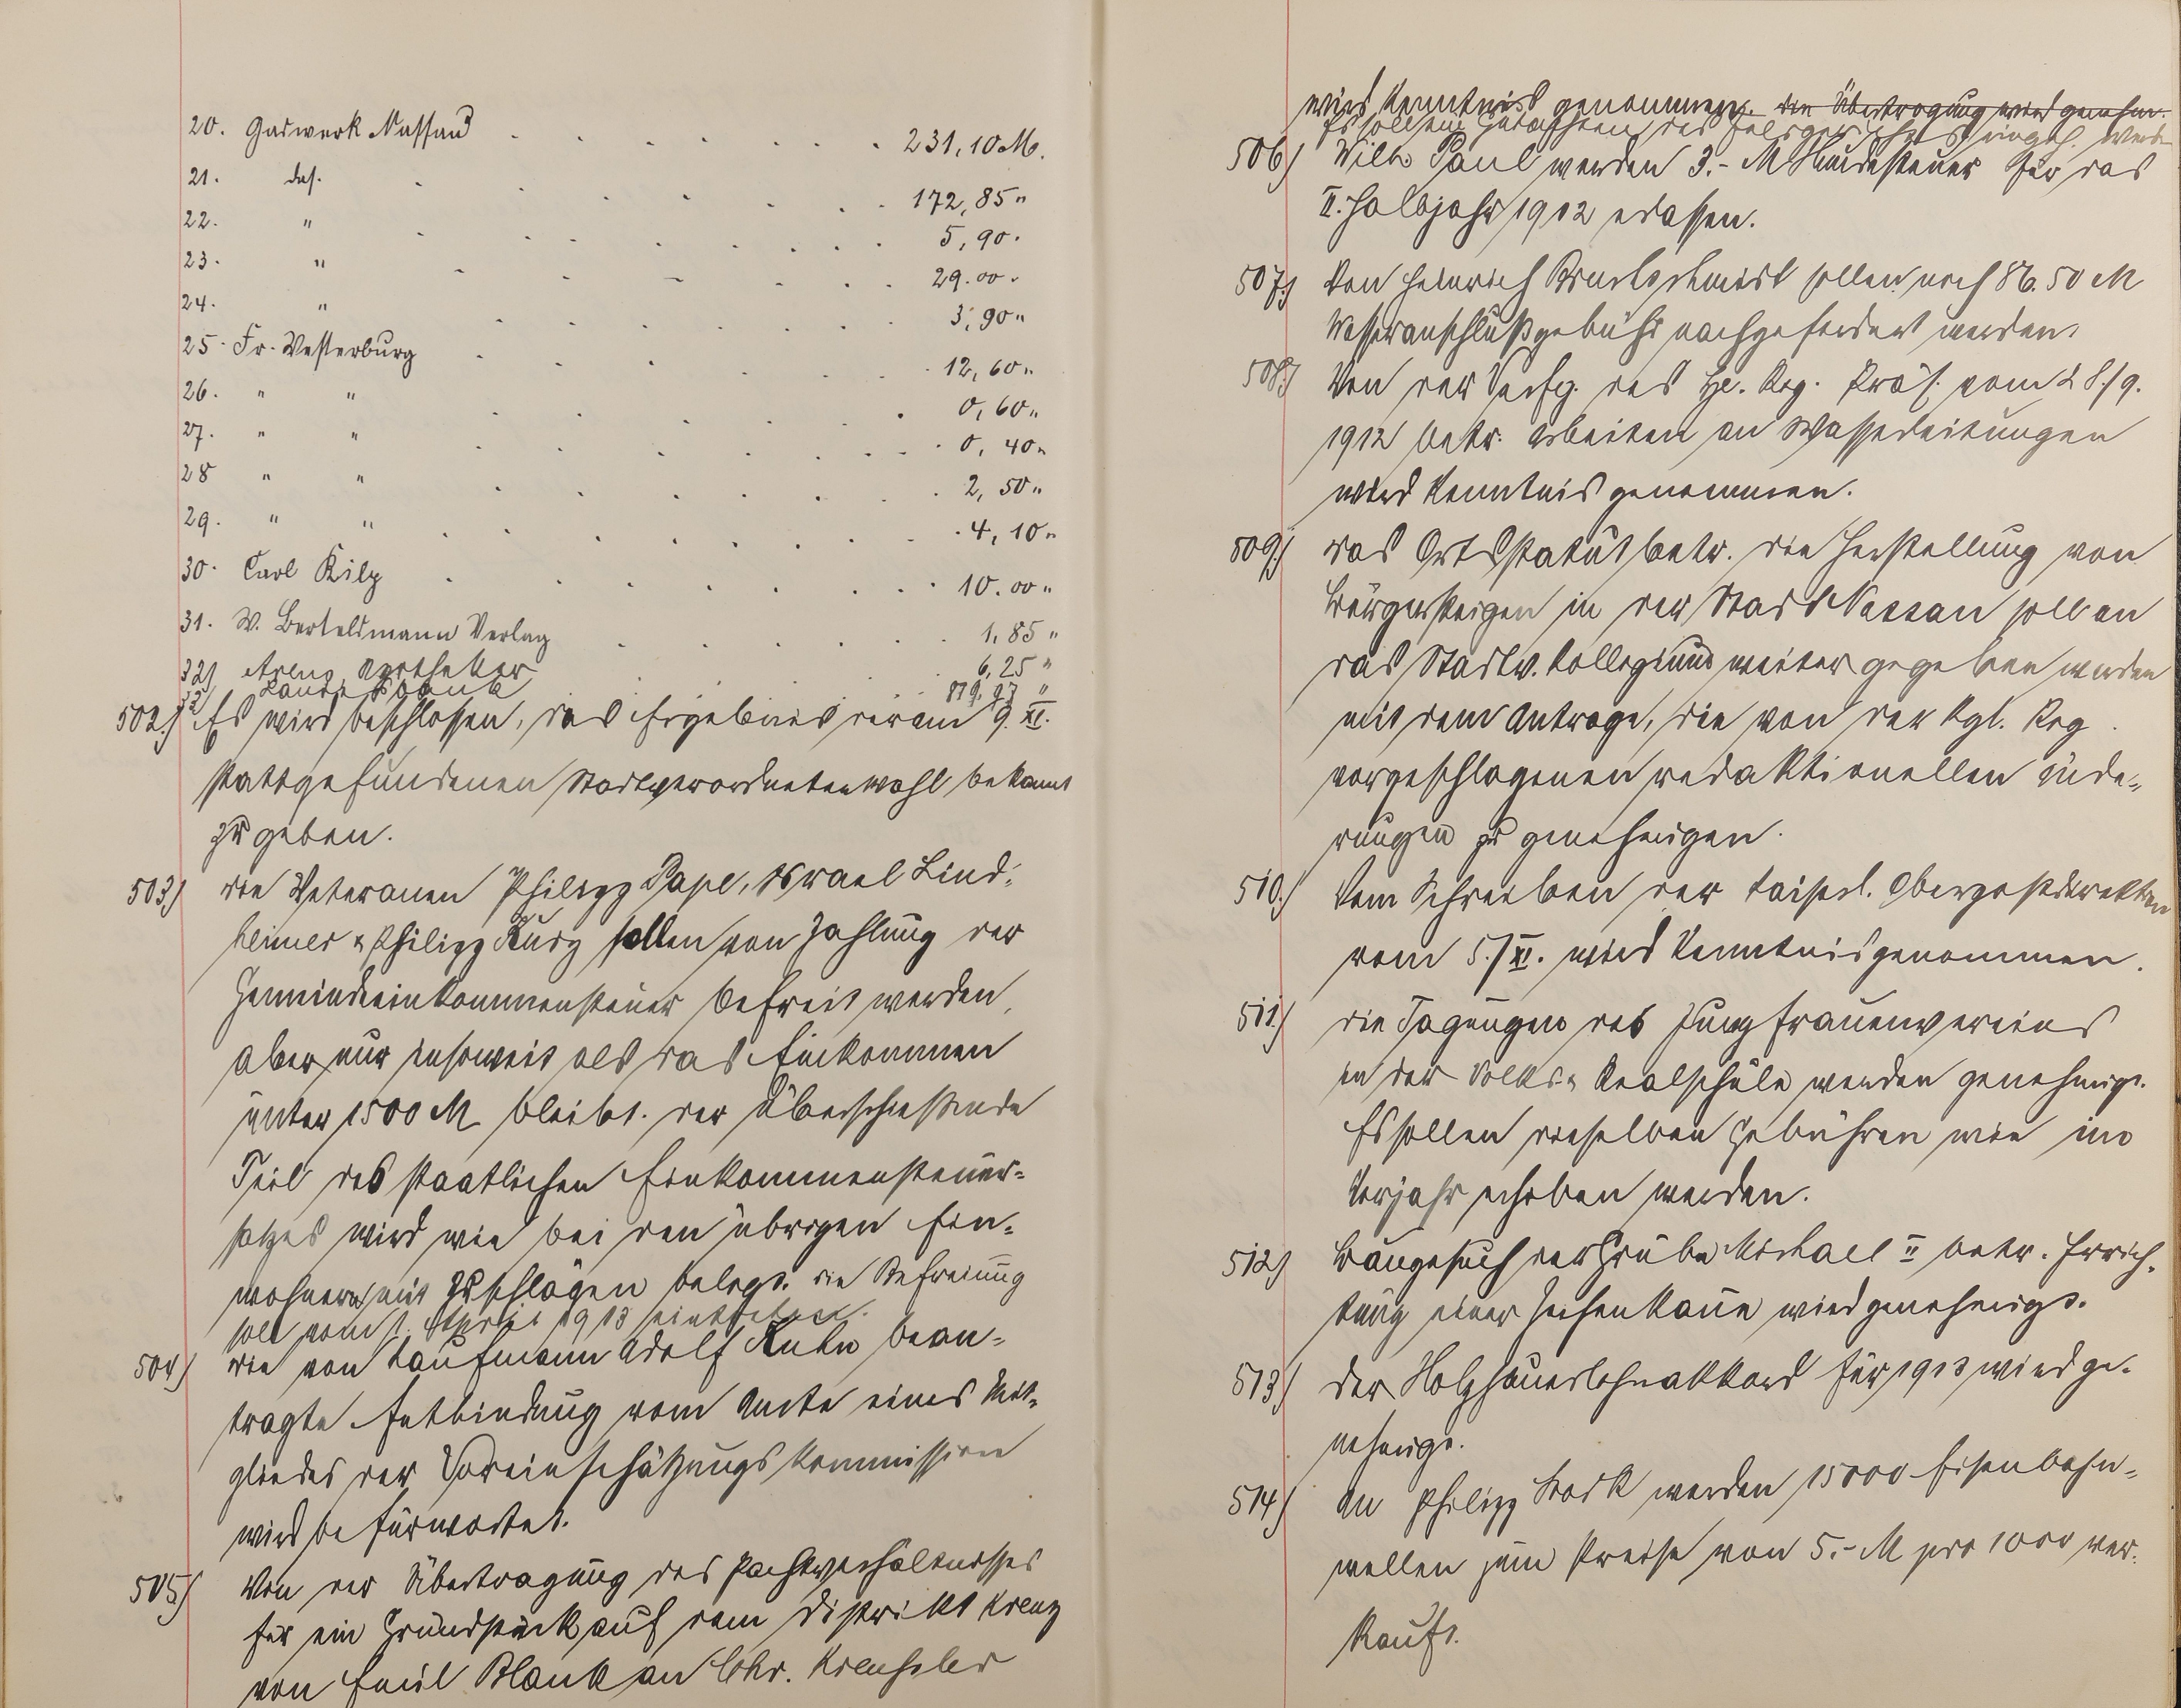 20. Gaswerk Nassau . . . . . . . 231,10 M.
21. das. . . . . . . 172,85 "
22. " . . . . . . . 5,90 "
23. " . . . . . . 29.00 "
24. " . . . . . . 3,90 "
25. Fr. Westerburg . . . . . . 12,60 "
26. " " . . . . . 0,60 "
27. " " . . . . . . 0,40 "
28 " " . . . . . . 2,50 "
29. " " . . . . . . . 4,10 "
30. Carl Kilp . . . . . . . 10.00 "
31. W. Berteldmann Verlag . . . . . 1,85 "
32) Apotheker . . . 6,25 "
Landesbank . . 879,97 "
502.) Es wird beschlossen, das Ergebnis der am 9. XI.
stattgefundenen Stadtverordnetenwahl bekannt
zu geben.
503.) die Veteranen Philipp Pape, Israel Lind-
heimer & Philipp Kurz sollen von Zahlung der
Gemeindeeinkommensteuer befreit werden,
aber nur insoweit als das Einkommen
unter 1500 M bleibt. der überschießende
Teil des staatlichen Einkommensteuer-
satzes wird wie bei den übrigen Ein-
wohnern mit Zuschlägen belegt. die Befreiung
soll vom 1. April 1913 eintreten.
504) die von Kaufmann Adolf Kuhn bean-
tragte Entbindung vom Amte eines Mit-
gliedes der Voreinschätzungskommission
wird befürwortet.
505) Von der Übertragung des Pachtverhältnisses
für ein Grundstück auf dem Distrikt Kreuz
von Emil Blank an Chr.
wird Kenntnis genommen. die Übertragung wird genehm.
Es soll ein Gutachten des Feldgerichts eingeh. werden
506) Wilh. Paul werden 3.- M Hundesteuer für das
II. Halbjahr 1912 erlassen.
507.) Von Heinrich sollen noch 86.50 M
Wasseranschlußgebühr nachgefordert werden.
508.) Von der Verfg. des H. Reg. Präs. vom 28./9.
1912 betr. Arbeiten an Wasserleitungen
wird Kenntnis genommen.
509.) das Ortsstatut betr. die Herstellung von
Bürgersteigen in der Stadt Nassau soll an
das Stadtv. Kollegium weiter gegeben werden
mit dem Antrage, die von der Kgl. Reg.
vorgeschlagenen redaktionellen Ände-
rungen zu genehmigen.
510.) Vom Schreiben der Kaiserl. Oberpostdirektion
vom 5./XI. wird Kenntnis genommen.
511.) die Tagungen des Jungfrauenvereins
in der Volks- & Realschule werden genehmigt.
Es sollen dieselben Gebühren wie im
Vorjahr erhoben werden.
512) Baugesuch der Grube Michael II betr. Errich-
tung einer Zechenkaue wird genehmigt.
513) Der Holzhauerlohnakkord für 1913 wird ge-
nehmigt.
514) An Philipp werden 15000 Eisenbahn-
wellen zum Preise von 5.- M pro 1000 ver-
kauft.